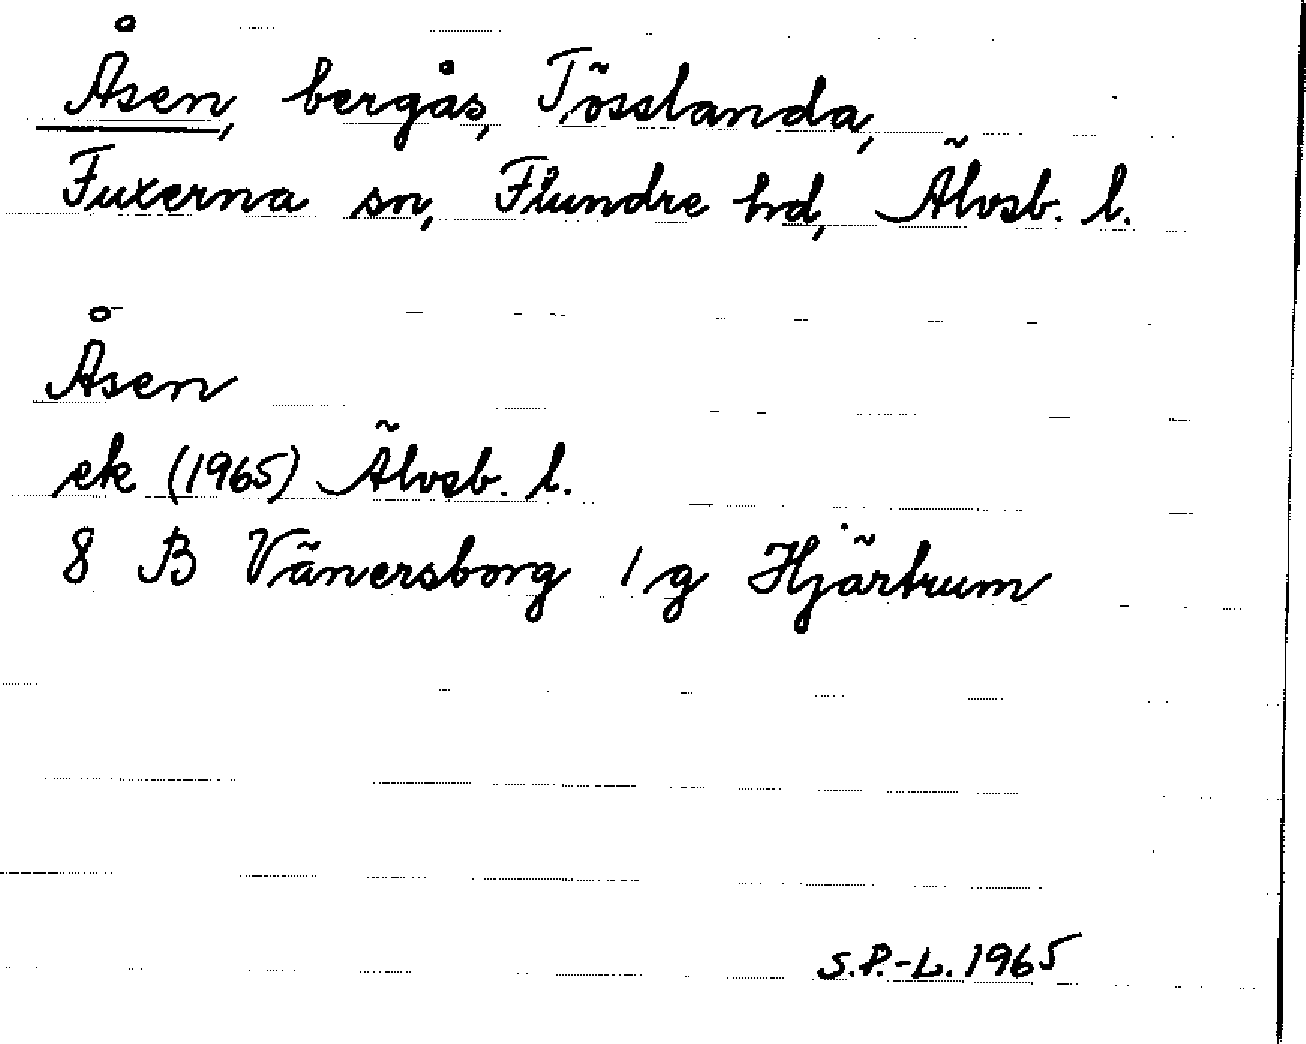 Åsen, bergås, Tösslanda,
Fuxerna sn, Flundre hd, Älvsb. l.
Åsen
ek (1965) Älvsb. l.
8 B Vänersborg 1 g Hjärtrum
S.P.-L. 1965